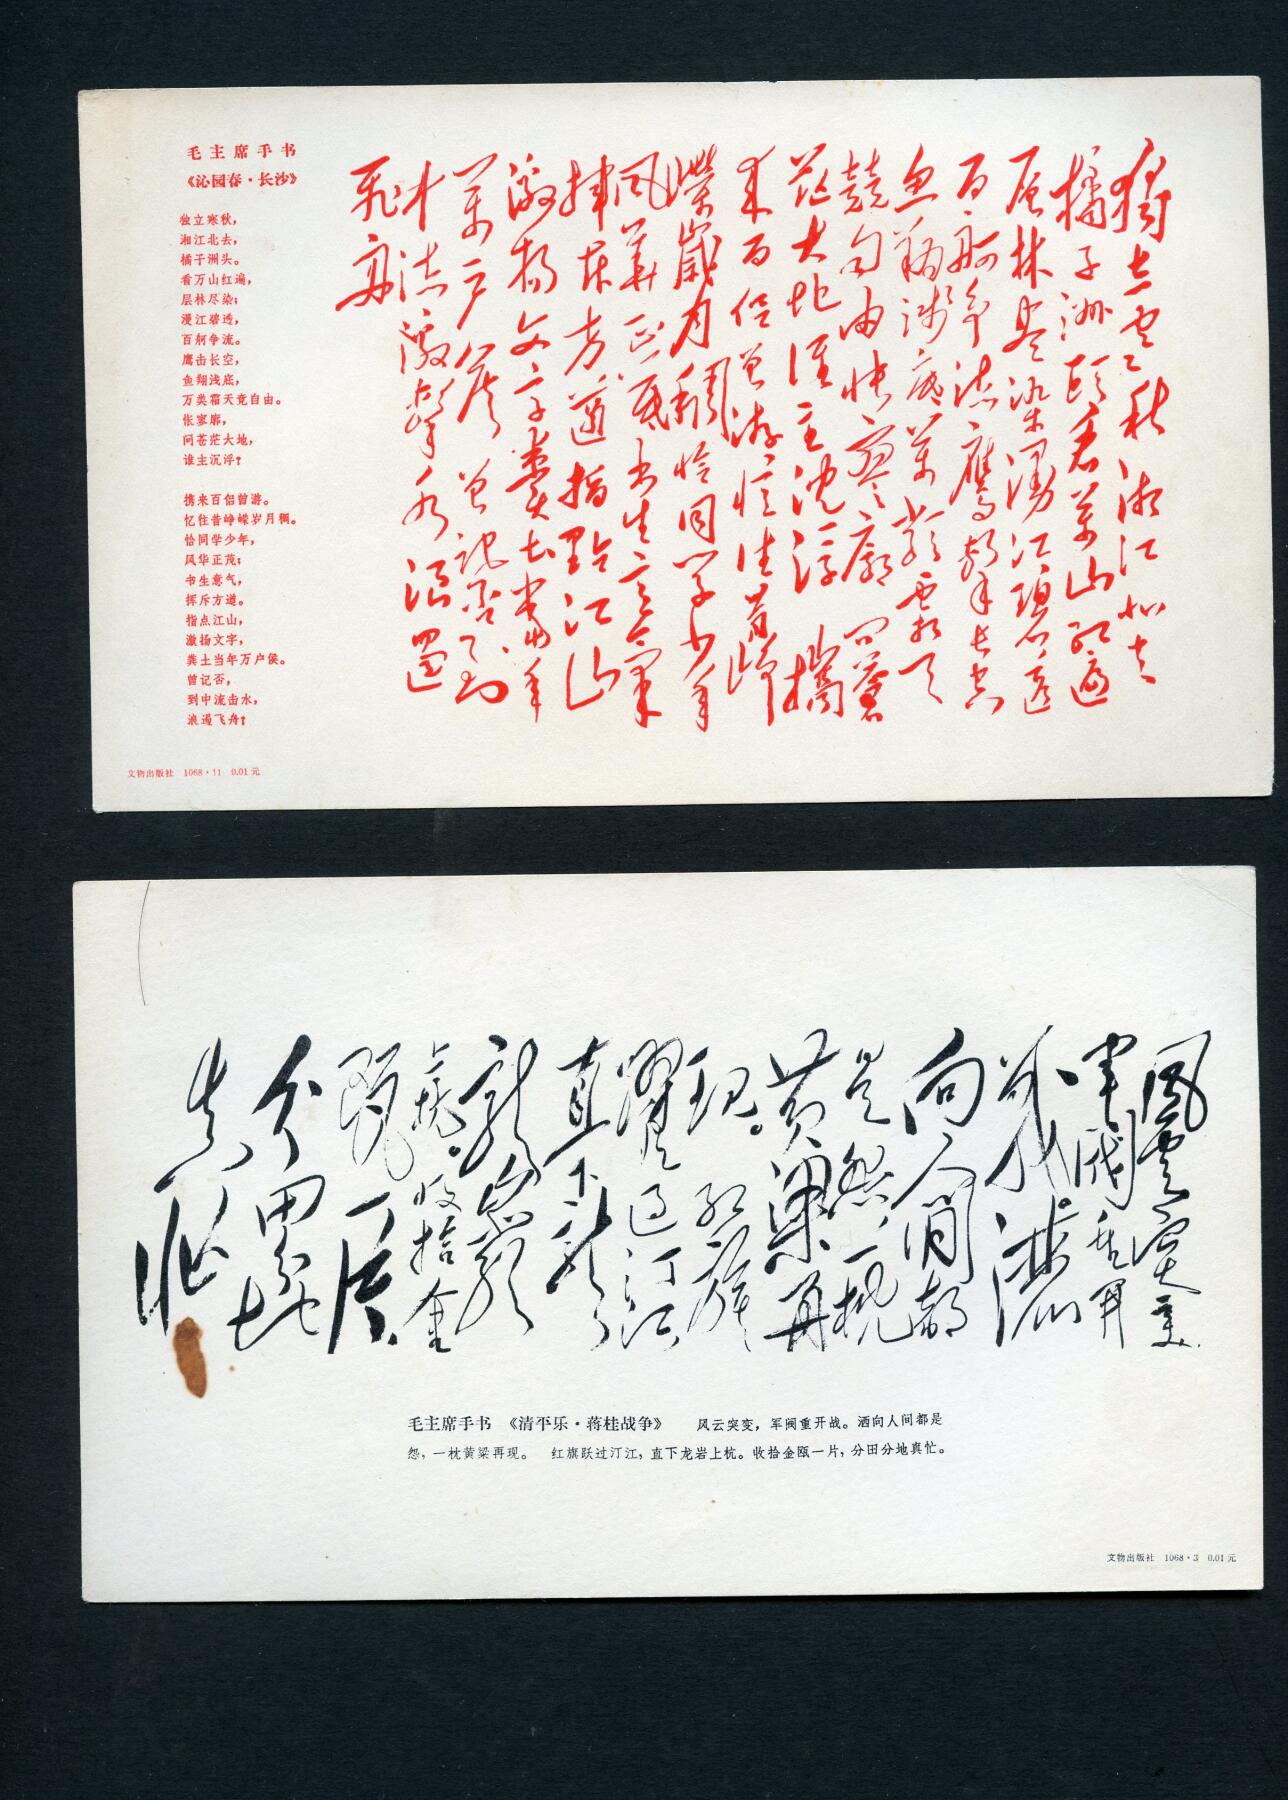 毛主席手书
《沁园春·长沙》
独立寒秋，
湘江北去，
橘子洲头。
看万山红遍，
层林尽染；
漫江碧透，
百舸争流。
鹰击长空，
鱼翔浅底，
万类霜天竞自由。
怅寥廓，
问苍茫大地，
谁主沉浮？
携来百侣曾游。
忆往昔峥嵘岁月稠。
恰同学少年，
风华正茂；
书生意气，
挥斥方遒。
指点江山，
激扬文字，
粪土当年万户侯。
曾记否，
到中流击水，
浪遏飞舟？
文物出版社 1068·11 0.01元
獨立寒秋湘江北去
橘子洲頭看萬山红遍
层林尽染漫江碧透
百舸争流鷹擊长空
魚翔浅底萬類霜天
競自由怅寥廓问蒼
茫大地谁主沈浮 攜
来百侣曾游忆往昔峥
嶸歲月稠恰同学少年
風華正茂書生意氣
揮斥方遒指點江山
激揚文字糞土當年
萬户侯曾記否到
中流激擊水浪遏
飛舟
風雲突变
軍閥重開
戰 灑
向人間都
是怨一枕
黄粱再
现。红旗
躍过汀江
直下龍
龍巖
上杭。收拾金
甌一片
分田分地
真忙
毛主席手书 《清平乐·蒋桂战争》 风云突变，军阀重开战。洒向人间都是
怨，一枕黄粱再现。 红旗跃过汀江，直下龙岩上杭。收拾金瓯一片，分田分地真忙。
文物出版社 1068·3 0.01元